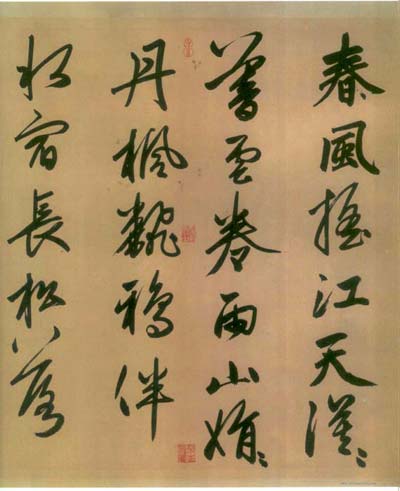 春風摇江天漠〻
暮雲卷雨山娟〻
丹楓翻鴉伴
水宿長松落